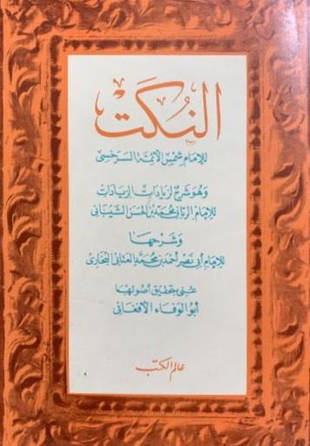 النُكَتْ
للإمام شمس الأئمة السرخسي
وهو شرح لزيادات الزيادات
للإمام الرباني محمد بن الحسن الشيباني
وشرحها
للإمام أبي نصر أحمد بن محمد العتابي البخاري
عني بتحقيق أصولها
أبو الوفاء الأفغاني
عالم الكتب